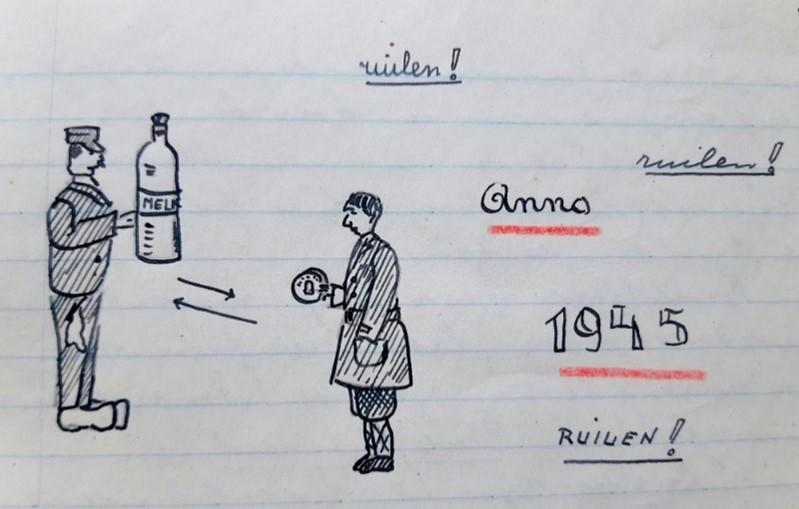 ruilen!
ruilen!
MELK
Anno
1945
RUILEN!